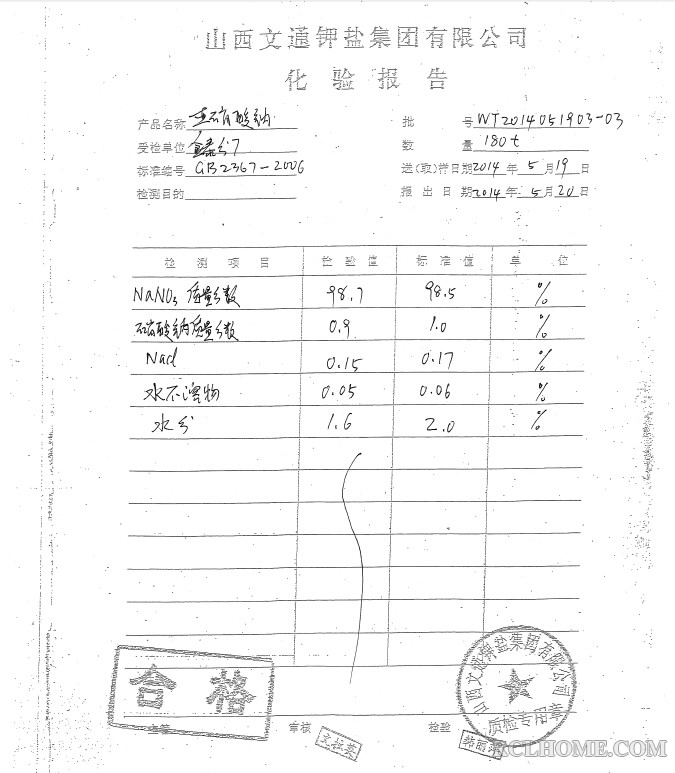 山西文通钾盐集团有限公司
化验报告
产品名称 亚硝酸钠 批号 WT2014051903-03
受检单位 数量 180t
标准编号 GB2367-2006 送(取)样日期 2014年5月19日
检测目的 报出日期 2014年5月20日
检测项目 检验值 标准值 单位
NaNO3 质量分数 98.7 98.5 %
硝酸钠质量分数 0.9 1.0 %
Nacl 0.15 0.17 %
水不溶物 0.05 0.06 %
水分 1.6 2.0 %
合格
山西文通钾盐集团有限公司
质检专用章
审核 检验
CLHOME.COM